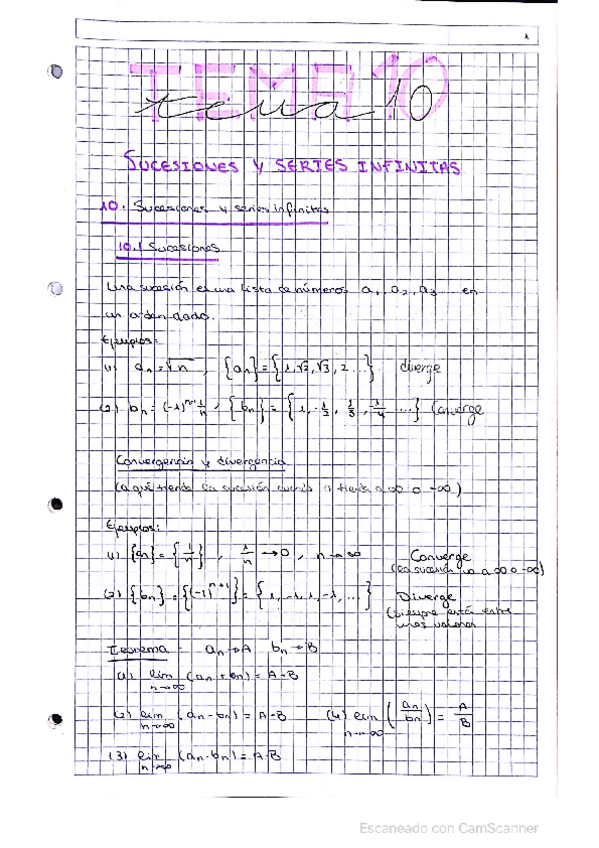 1
TEMA 10
tema 10
SUCESIONES Y SERIES INFINITAS
10. Sucesiones y series infinitas
10.1 Sucesiones
Una sucesión es una lista de números a₁, a₂, a₃ .... en
un orden dado.
Ejemplos:
(1) aₙ = √n , {aₙ} = {1, √2, √3, 2...} diverge
(2) bₙ = (-1)ⁿ⁺¹ 1/n , {bₙ} = {1, -1/2, 1/3, -1/4 ....} Converge
Convergencia y divergencia
(a qué tiende la sucesión cuando n tiende a ∞ o -∞)
Ejemplos:
(1) {aₙ} = {1/n} , 1/n → 0 , n → ∞ Converge
(la sucesión va a ∞ o -∞)
(2) {bₙ} = {(-1)ⁿ⁺¹} = {1, -1, 1, -1, ...} Diverge
(siempre está entre
unos valores
Teorema aₙ → A bₙ → B
(1) lim n→∞ (aₙ + bₙ) = A+B
(2) lim n→∞ (aₙ - bₙ) = A-B (4) lim n→∞ (aₙ/bₙ) = A/B
(3) lim n→∞ (aₙ·bₙ) = A·B
Escaneado con CamScanner